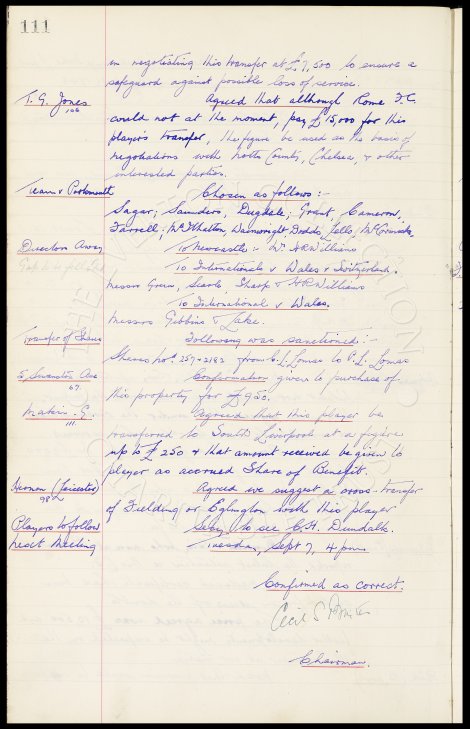 111
in negotiating this transfer at £7,500 to ensure a
safeguard against possible loss of service.
T. G. Jones
106
Agreed that although Rome F.C.
could not at the moment, pay £15,000 for this
players transfer, the figure be used as the basis of
negotiations with Notts County, Chelsea, & other
interested parties.
Team v Portsmouth
Chosen as follows :-
Sagar; Saunders, Dugdale; Grant, Cameron,
Farrell; McIlhatton Wainwright Dodds, Fells, McCormick
Directors Away
To Newcastle :- Mr. W R Williams
To Internationals v Wales & Switzerland.
Messrs Green, Searle, Sharp & W R Williams
To International v Wales.
Messrs Gibbins & Lake.
Transfer of Shares
Following was sanctioned :-
Shares nos. 257 & 2182 from L. Lomas to P. L. Lomas
Ave
67.
Confirmation given to purchase of
this property for £950.
Makin. G.
111.
Agreed that this player be
transferred to South Liverpool at a figure
up to £250 & that amount received be given to
player as accrued Share of Benefit.
(Leicester)
98
Agreed we suggest a cross-transfer
of Fielding or Eglington with this player
Players to follow
Secy to see C.H. Dundalk.
Next Meeting
Tuesday, Sept 7, 4 pm
Confirmed as correct.
Cecil S
Chairman.